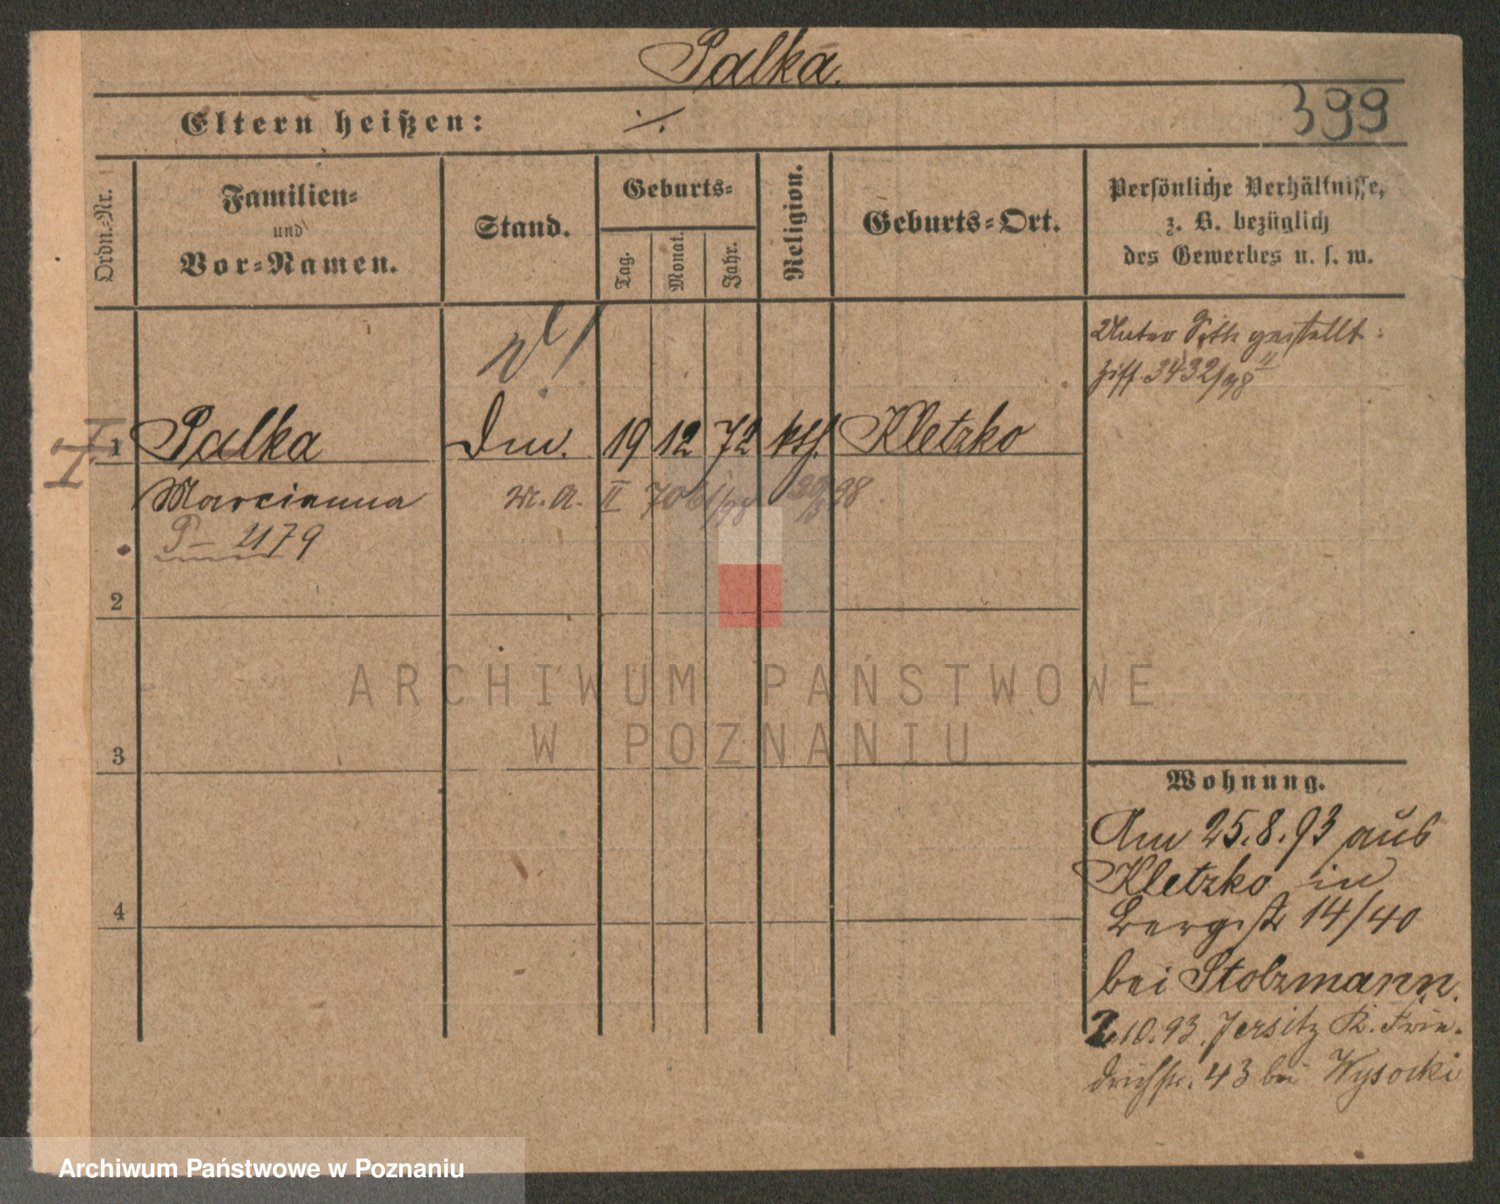 Palka.
Eltern heißen: ·/.
399
Ordn.-Nr.
Familien-
und
Vor-Namen.
Stand.
Geburts-
Tag.
Monat.
Jahr.
Religion.
Geburts-Ort.
Persönliche Verhältnisse,
z. B. bezüglich
des Gewerbes u. s. w.
Unter Sitte gestellt:
3432/98 II
1 Palka Dm. 19 12 72 kth. Kletzko
Marcianna M. A. II 98
P- 2179
2
3
4
Wohnung.
Am 25.8.93 aus
Kletzko in
Bergstr 14/40
bei Stolzmann.
2.10.93. Jersitz K. Frie-
drichstr. 43 bei Wysocki
ARCHIWUM PAŃSTWOWE
W POZNANIU
Archiwum Państwowe w Poznaniu